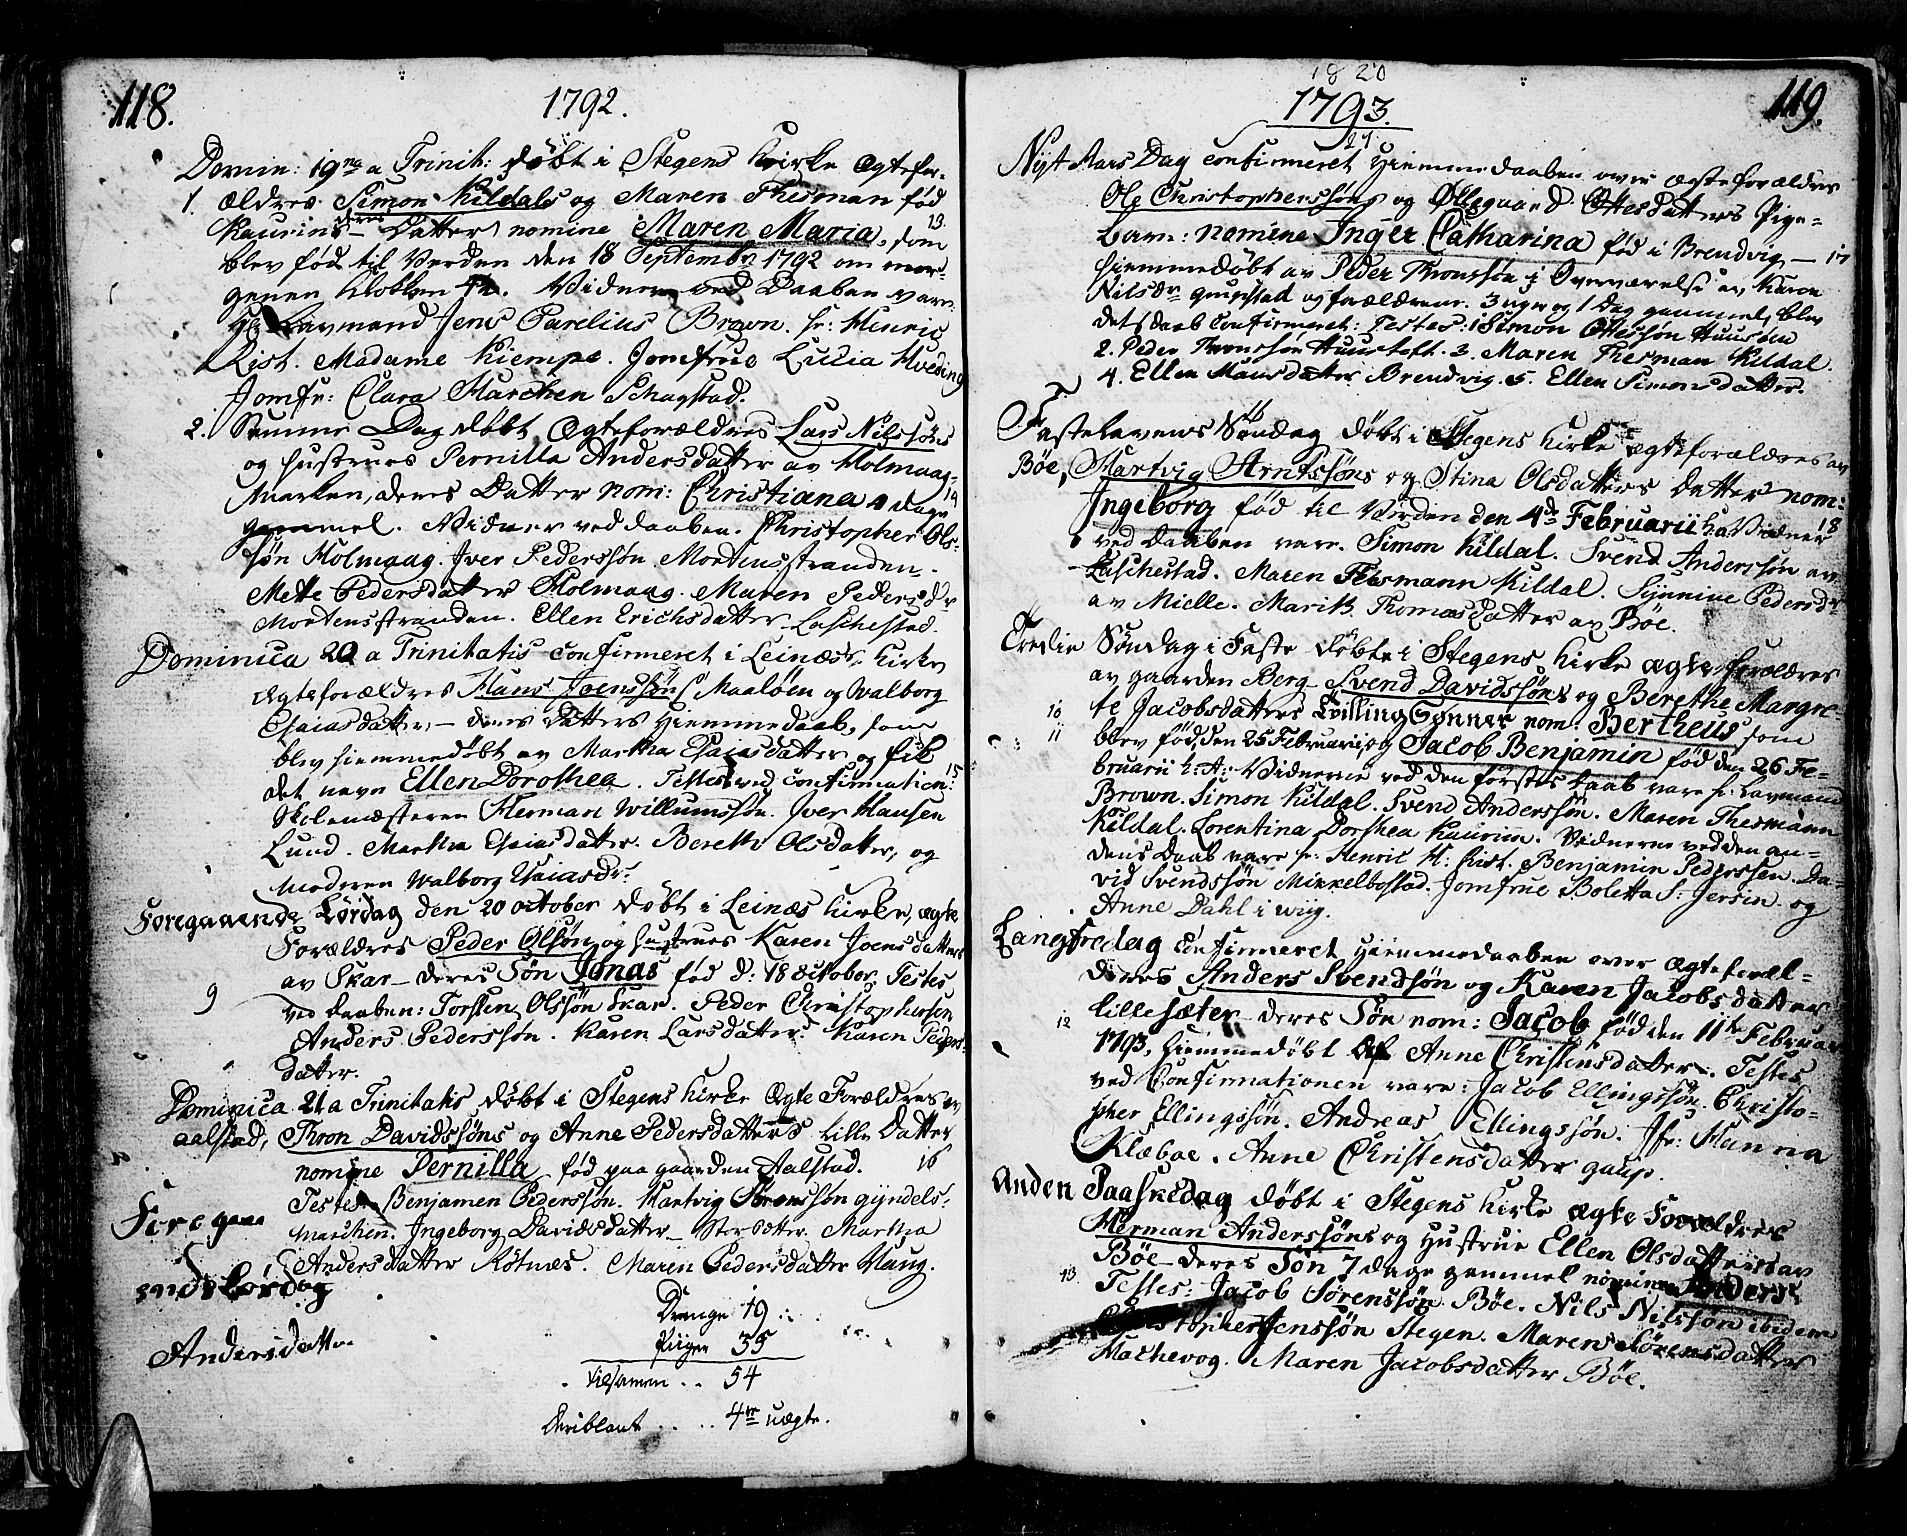 118.
1792.
Domin: 19na a Trinit: døbt i Stegens Kirke Ægtefor-
1. ældres Simon Kildals og Maren Thesman fød
Kaurins deres Datter nomine Maren Maria, som 13.
blev fød til Verden den 18 Septembr 1792 om mor-
genen Klokken. Vidner ved Daaben vare
Hr Lavmand Jens Parelius Brown. hr: Henric
Rist. Madame Kiempe. Jomfrue Lucia Hveding
Jomfr: Clara Marchen Schagstad.
2. Samme Dag døbt Ægteforældres Lars Nilssøns
og hustrues Pernilla Andersdatter av Holmaag-
Marken, deres Datter nom: Christiana 4 dage 14
gammel. Vidner ved daaben. Christopher Ols-
søn Holmaag. Iver Pederssøn Mortensstranden.
Mette Pedersdatter Holmaag. Maren Pedersdr
Mortensstranden. Ellen Erichsdatter Laschestad.
Dominica 20 a Trinitatis confirmeret i Leinæss Kirke
Ægteforældres Hans Joenssøns Maaløen og Walborg
Esaiasdatter, - deres datters Hiemmedaab, som
blev hiemmedøbt av Martha Esaiasdatter og fik
det navn Ellen Dorothea. Testes ved confirmation: 15
Skolemæsteren Herman Willumssøn. Iver Hansen
Lund. Martha Esaiasdatter. Berethe Olsdatter, og
Moderen Walborg Esaiasdr.
Foregaaende Lørdag den 20 october døbt i Leinæs Kirke, ægte
Forældres Peder Olsøn og hustrues Karen Joensdatters
av Skar - deres Søn Jonas fød d: 18 october. Testes
9 ved daaben: Torsten Olssøn Skar. Peder Christophersen
Anders Pederssøn. Karen Larsdatter. Karen Peders-
datter.
Dominica 21 a Trinitatis døbt i Stegens Kirke Ægte Forældres av
aalstad, Thron Davidssøns og Anne Pedersdatters lille Datter
nomine Pernilla fød paa gaarden Aalstad. 16
Testes Benjamen Pederssøn. Hartvig Sørenssøn gyndels-
Marchen. Ingeborg Davidsdatter - Martha
Foregaa
Andersdatter Røtnæs. Maren Pedersdatter Haug.
ende Lørdag
Drenge 19
Piiger 35
Andersdatter
tilsamen .. 54
Deriblant . . .. 4re uægte.
1820
1793.
119.
17
Nyt Aars Dag confirmeret Hiemmedaaben over ægteforældres
Ole Christopherssøns og Øllegaard Ottesdatters Pige-
barn: nomine Inger Catharina fød i Brendvig - 17
hiemmedøbt av Peder Thronssøn i Overværelse av Karen
Nilsdr og forældrene. 3 uger og 1 Dag gammel, blev
dets daab confirmeret: Testes: 1 Simon Ottessøn
2. Peder Thronssøn Huustoft. 3. Maren Thesman Kildal.
4. Ellen Hansdatter Brendvig. 5. Ellen Simonsdatter.
16
Fastelavens Søndag døbt i Stegens Kirke ægteforældres av
Bøe, Hartvig Arntssøns og Stina Olsdatters datter nom:
Ingeborg fød til Verden den 4de Februarii h.a. Vidner 18
ved Daaben vare. Simon Kildal. Svend Anderssøn av
Laschestad. Maren Thesmann Kildal. Synnine Pedersdr
av Mielle. Marith Thomasdatter av Bøe.
Tredie Søndag i Faste døbte i Stegens Kirke ægte forældres
av gaarden Berg Svend Davidssøns og Berethe Margre-
10 te Jacobsdatters Tvilling Sønner nom: Bertheus som
11 blev fød, den 25 Februarii, og Jacob Benjamin fød den 26 Fe-
bruarii h: A: Vidnerne ved den førstes daab vare hr: Lavmand
Brown. Simon Kildal. Svend Anderssøn. Maren Thesmann
Kildal. Lorentina Dorthea Kaurin. Vidnerne ved den an-
dens Daab vare hr: Henric H: Rist. Benjamin Pederssen. Da-
vid Svendssøn Mikkelbostad. Jomfrue Boletta S: Jersin og
Anne Dahl i wiig.
Langfredag Confirmeret Hiemmedaaben over Ægteforæl-
deres Anders Svendsøn og Karen Jacobsdatter
Lille Sæter deres Søn nom: Jacob, fød den 11te Februar
12 1793, hiemmedøbt af Anne Christensdatter. Testes
ved Confirmationen vare: Jacob Ellingssøn. Christo-
pher Ellingssøn. Andreas Ellingssøn. Jfr: Hanna
Klæboe. Anne Christensdatter gaup.
Anden Paaskedag døbt i Stegens Kirke ægte Forældres
Herman Anderssøns og Hustrue Ellen Olsdatters av
Bøe - deres Søn 7 dage gammel nomine Anders
13. Testes: Jacob Sørenssøn Bøe. Nils Nilssøn ibidem
Christopher Jenssøn Stegen. Maren Sørensdatter
Machevog. Maren Jacobsdatter Bøe.